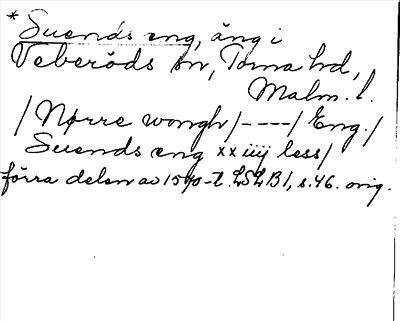 * Suends eng, äng i
Veberöds sn, Torna hd,
Malm. l.
/Nørre wongh/----/Eng./
Suends eng xx iiij less/
förra delen av 1570-t. LSLB1, s.46. orig.